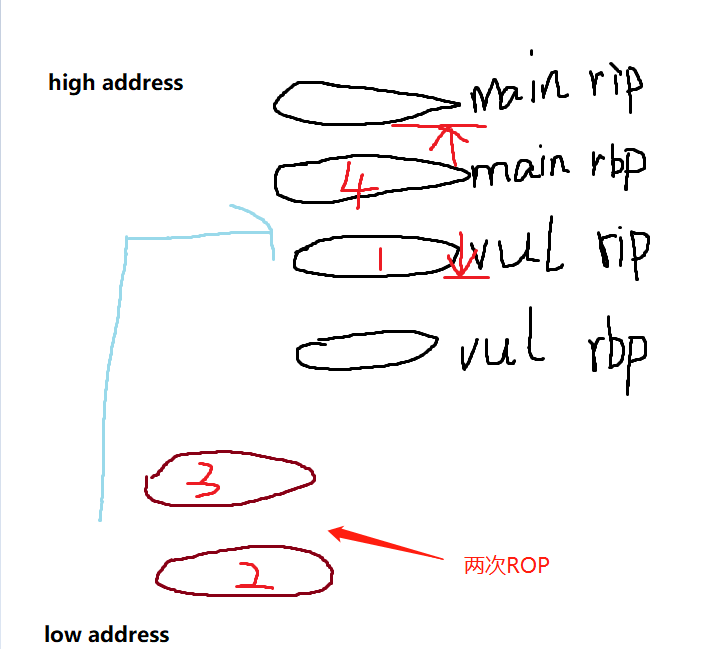 high address
main rip
4 main rbp
1 vul rip
vul rbp
3
两次ROP
2
low address